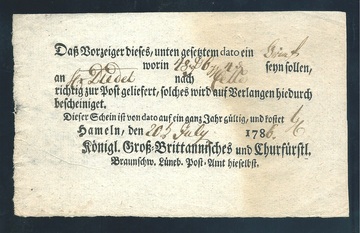 Daß Vorzeiger dieses, unten gesetztem dato ein
worin seyn sollen,
an Diedel nach Zelle
richtig zur Post geliefert, solches wird auf Verlangen hiedurch
bescheiniget.
Dieser Schein ist von dato auf ein gantz Jahr gültig, und kostet
Hameln, den 20 July 1786.
Königl. Groß-Brittannisches und Churfürstl.
Braunschw. Lüneb. Post-Amt hieselbst.